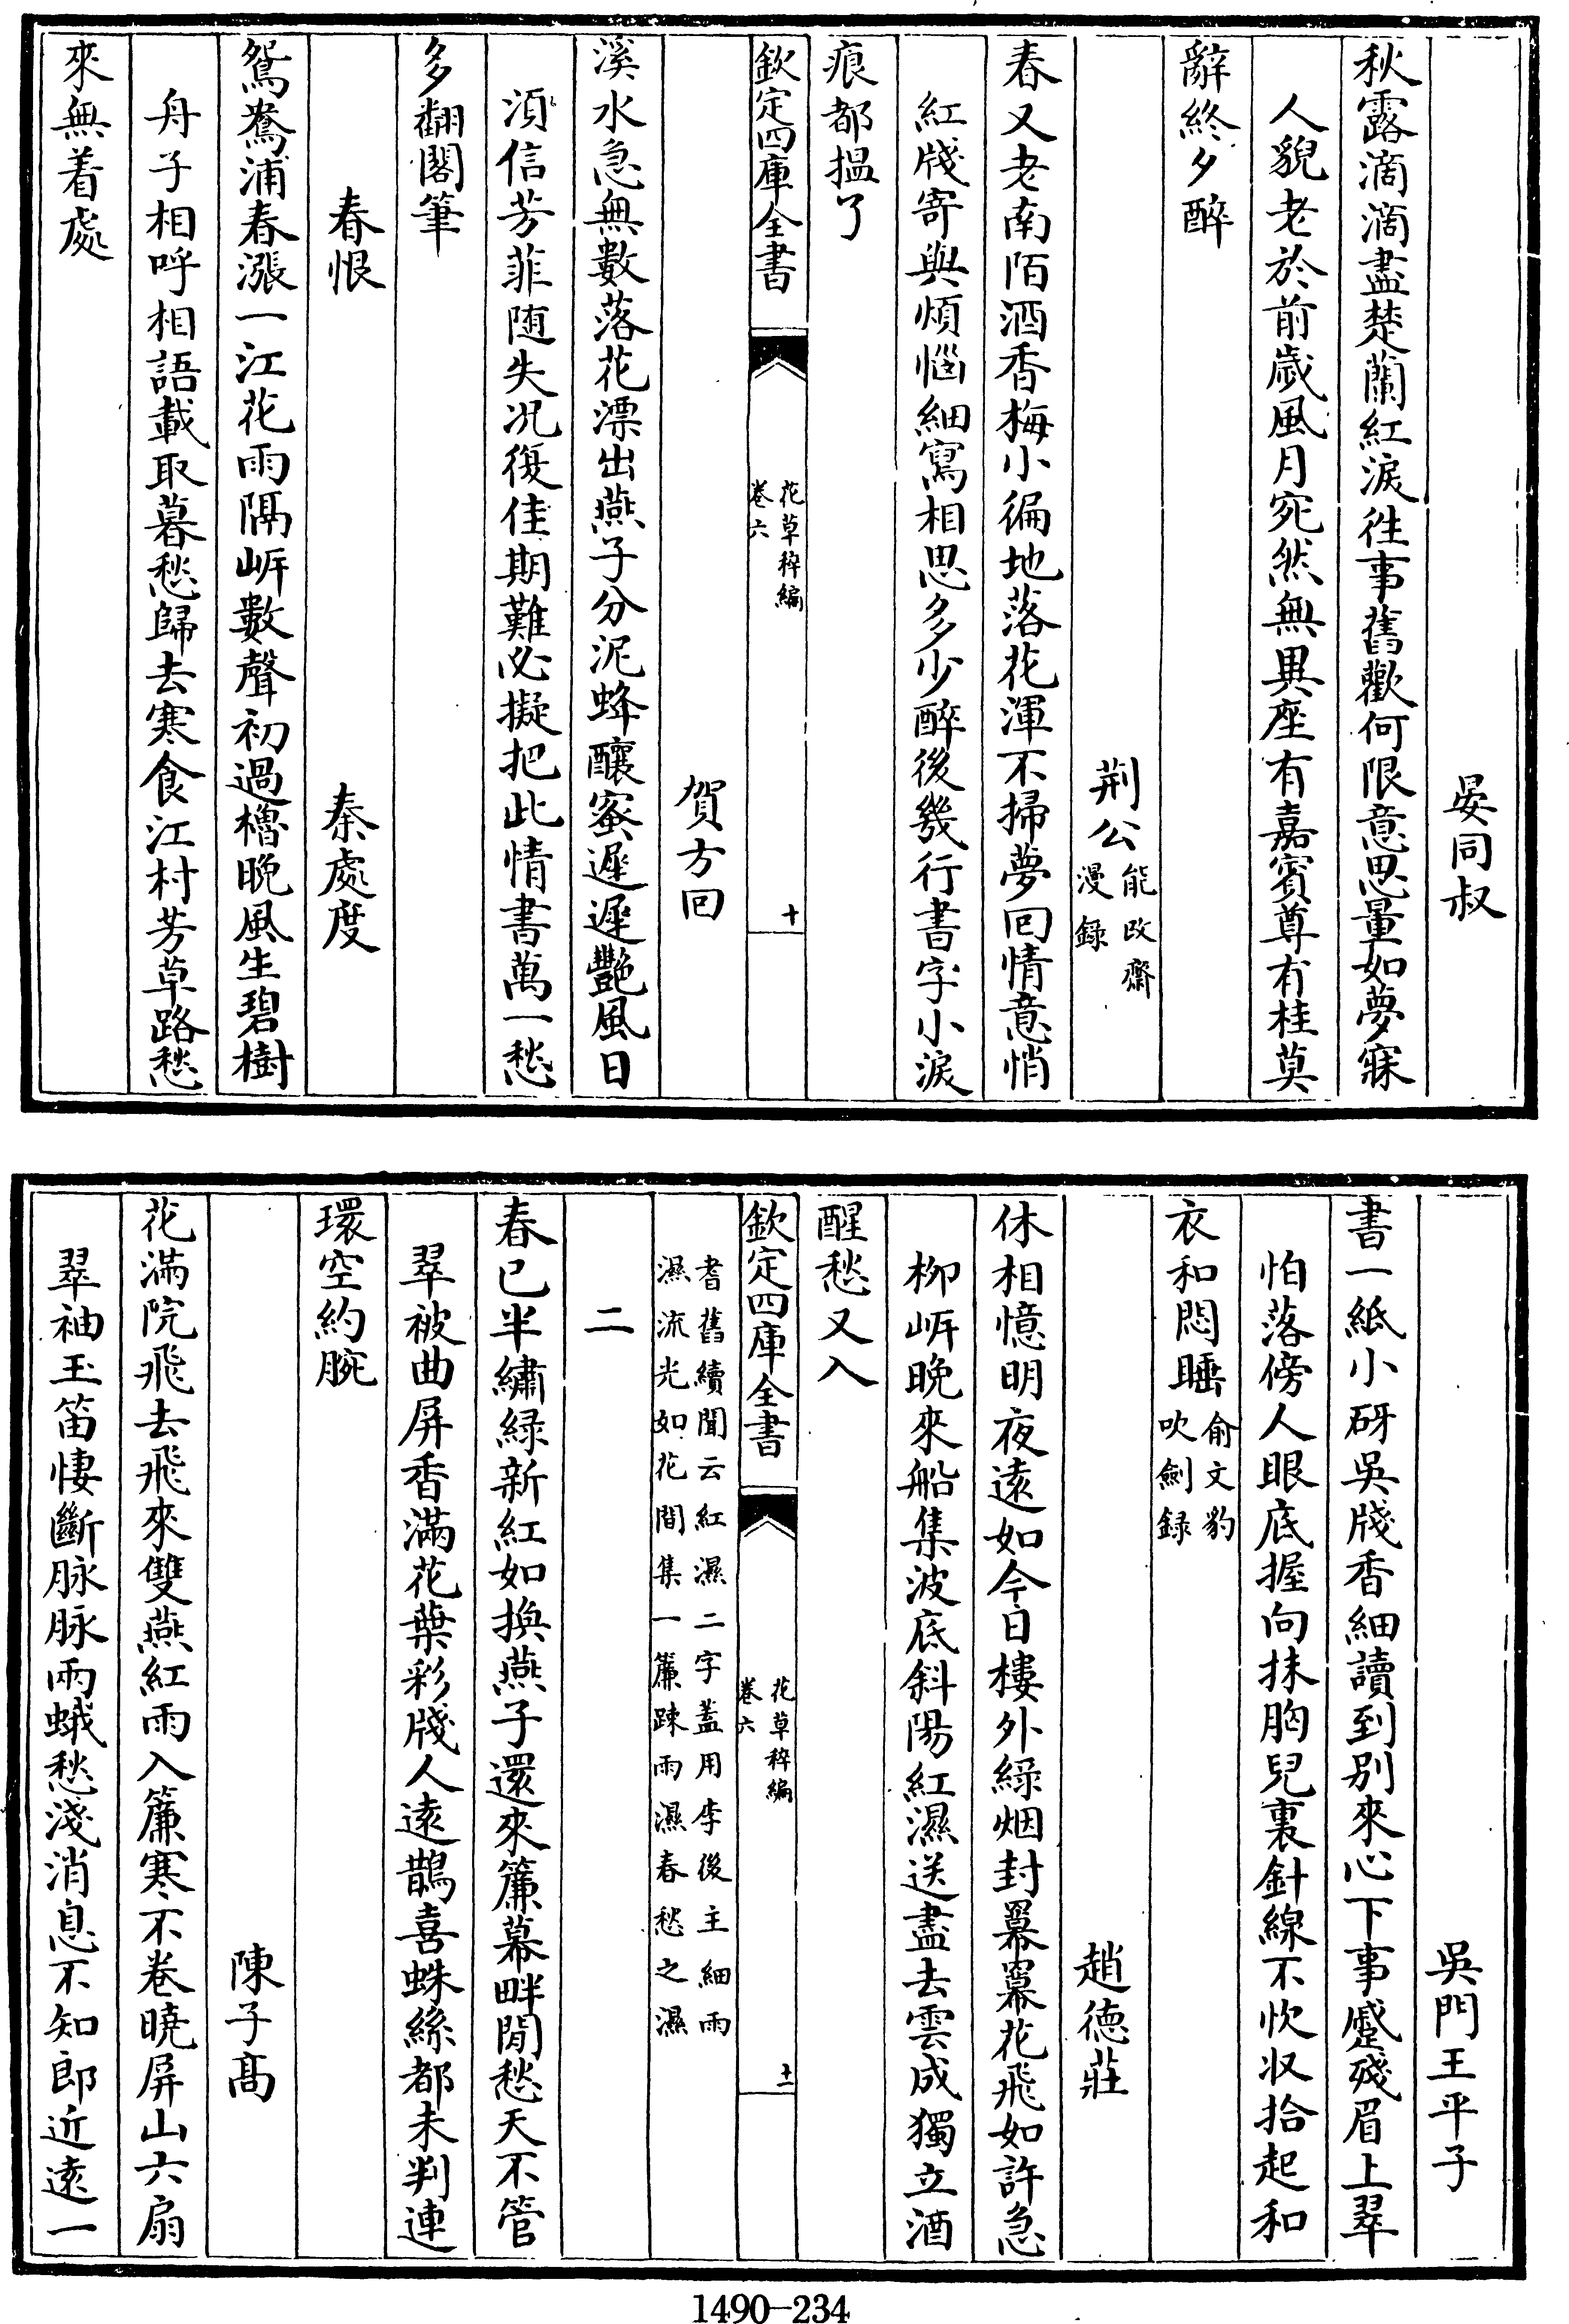 晏同叔
秋露滴滴盡楚蘭紅淚徃事舊歡何限意思量如夢寐
人貌老於前歲風月宛然無異座有嘉賓尊有桂莫
辭終夕醉
荆公能改齋漫録
春又老南陌酒香梅小徧地落花渾不掃夢回情意悄
紅牋寄與煩惱細寫相思多少醉後幾行書字小淚
痕都搵了
欽定四庫全書
花草稡編
卷六
十
賀方回
溪水急無數落花漂出燕子分泥蜂釀蜜遲遲艷風日
須信芳菲随失况復佳期難必擬把此情書萬一愁
多翻閣筆
春恨 秦處度
鴛鴦浦春漲一江花雨隔岍數聲初過櫓晚風生碧樹
舟子相呼相語載取暮愁歸去寒食江村芳草路愁
來無着處
吳門王平子
書一紙小砑吳牋香細讀到别來心下事蹙殘眉上翠
怕落傍人眼底握向抹胸兒裏針線不忺収拾起和
衣和悶睡俞文豹吹劍録
趙德莊
休相憶明夜遠如今日樓外緑烟封羃羃花飛如許急
栁岍晚來船集波底斜陽紅濕送盡去雲成獨立酒
醒愁又入
欽定四庫全書
花草稡編
卷六
十一
耆舊續聞云紅濕二字葢用李後主細雨
濕流光如花間集一簾踈雨濕春愁之濕
二
春已半繡緑新紅如換燕子還來簾幕畔閒愁天不管
翠被曲屏香滿花葉彩牋人遠鵲喜蛛絲都未判連
環空約腕
陳子髙
花滿院飛去飛來雙燕紅雨入簾寒不卷曉屏山六扇
翠袖玉笛悽斷脉脉兩蛾愁淺消息不知郎近遠一
1490-234